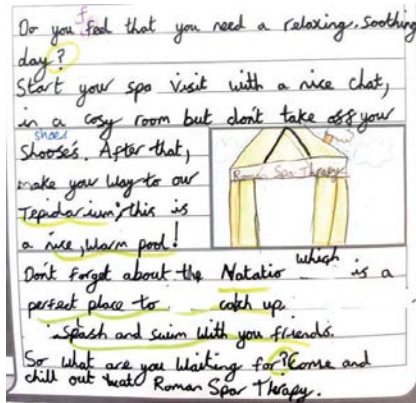 Do you feel that you need a relaxing, soothing
day?
Start your spa visit with a nice chat,
in a cosy room but don't take off your
shoes
Shooses. After that,
make your way to our
Tepidarium; this is
a nice, warm pool!
Roman Spa Therapy
Don't forget about the Natatio which is a
perfect place to catch up
Splash and swim with you friends.
So what are you waiting for? Come and
chill out at Roman Spar Therapy.